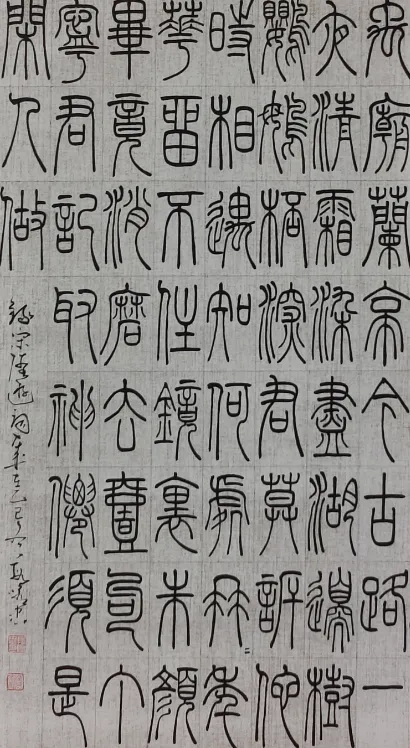 禹廟蘭亭今古路一
夜清霜染盡湖邊樹
鸚鵡桮深君莫訴他
時相遇知何處冉〻年
華留不住鏡裏朱顏
畢竟消磨去壹句丁
寧君記取神僊須是
閑人做
錄宋陸游詞歲在乙巳